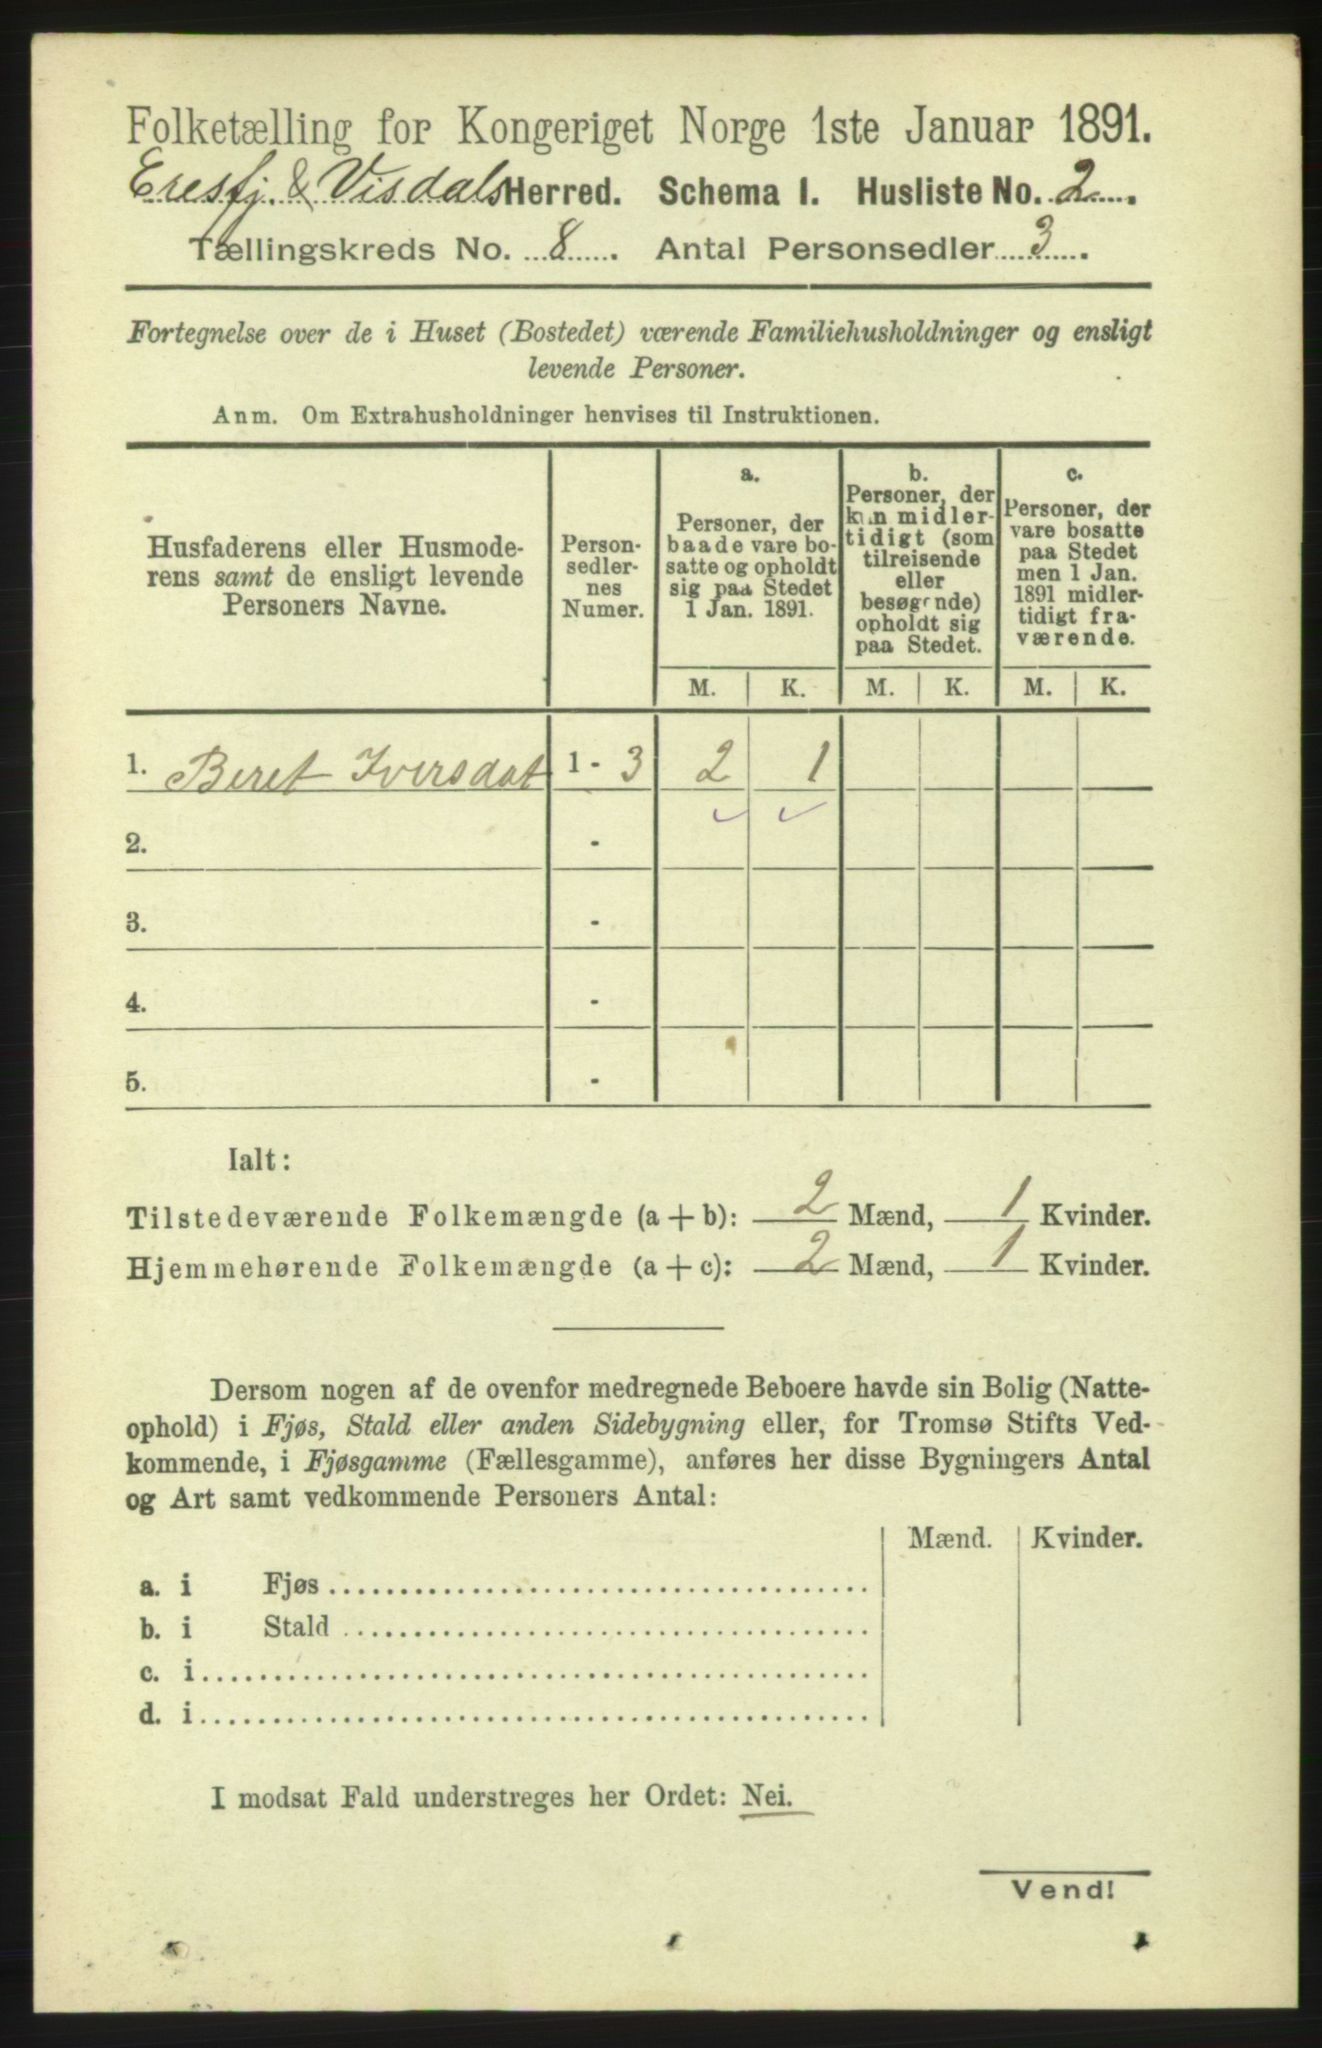 Folketælling for Kongeriget Norge 1ste Januar 1891.
Eresfj. & Visdals Herred. Schema I. Husliste No. 2
Tællingskreds No. 8. Antal Personsedler 3.
Fortegnelse over de i Huset (Bostedet) værende Familiehusholdninger og ensligt
levende Personer.
Anm. Om Extrahusholdninger henvises til Instruktionen.
Husfaderens eller Husmode-
rens samt de ensligt levende
Personers Navne.
Person-
sedler-
nes
Numer.
a.
Personer, der
baade vare bo-
satte og opholdt
sig paa Stedet
1 Jan. 1891.
b.
Personer, der
kun midler-
tidigt (som
tilreisende
eller
besøgende)
opholdt sig
paa Stedet.
c.
Personer, der
vare bosatte
paa Stedet
men 1 Jan.
1891 midler-
tidigt fra-
værende.
M. K. M. K. M. K.
1. Beret Iversdat 1 - 3 2 1
2. -
3. -
4. -
5. -
Ialt:
Tilstedeværende Folkemængde (a + b): 2 Mænd, 1 Kvinder.
Hjemmehørende Folkemængde (a + c): 2 Mænd, 1 Kvinder.
Dersom nogen af de ovenfor medregnede Beboere havde sin Bolig (Natte-
ophold) i Fjøs, Stald eller anden Sidebygning eller, for Tromsø Stifts Ved-
kommende, i Fjøsgamme (Fællesgamme), anføres her disse Bygningers Antal
og Art samt vedkommende Personers Antal:
Mænd. Kvinder.
a. i Fjøs
b. i Stald
c. i
d. i
I modsat Fald understreges her Ordet: Nei.
Vend!